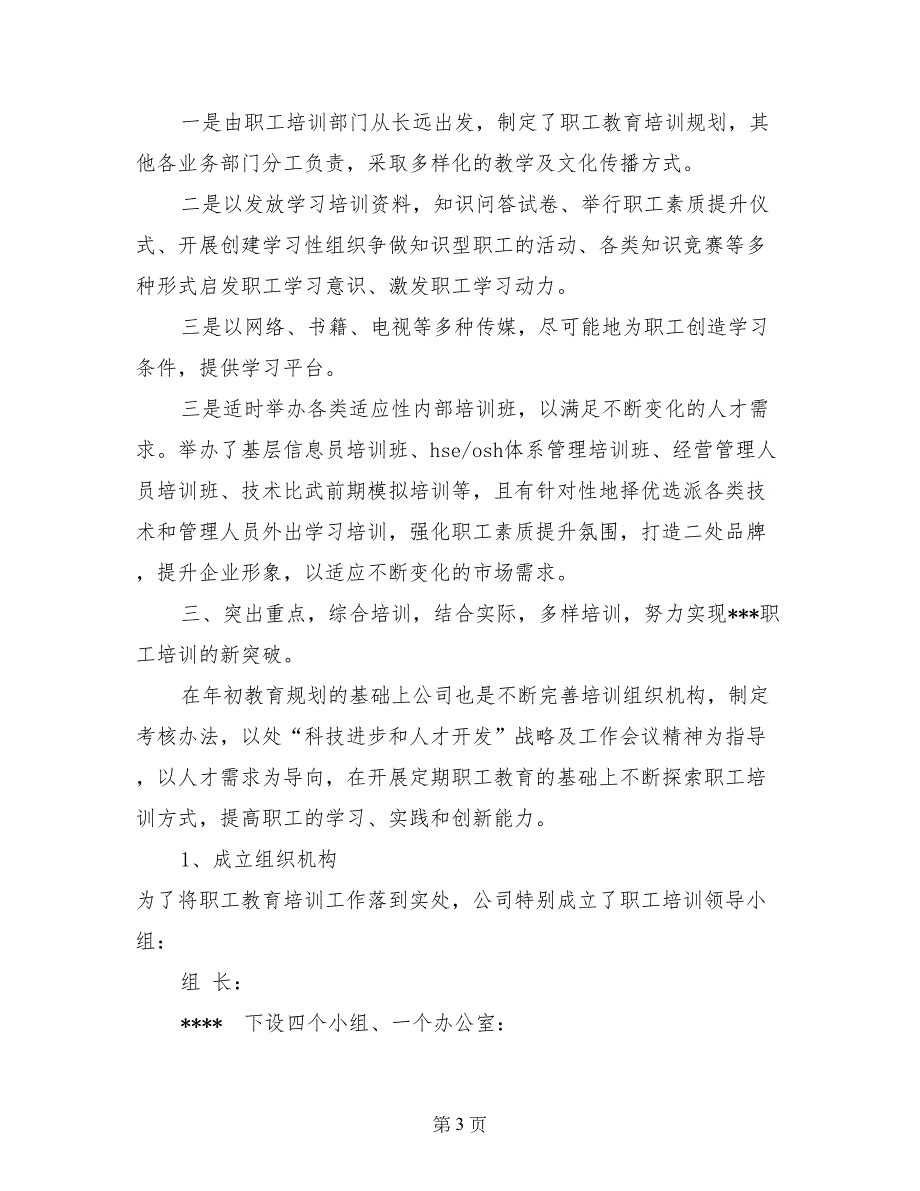 一是由职工培训部门从长远出发，制定了职工教育培训规划，其
他各业务部门分工负责，采取多样化的教学及文化传播方式。
二是以发放学习培训资料，知识问答试卷、举行职工素质提升仪
式、开展创建学习性组织争做知识型职工的活动、各类知识竞赛等多
种形式启发职工学习意识、激发职工学习动力。
三是以网络、书籍、电视等多种传媒，尽可能地为职工创造学习
条件，提供学习平台。
三是适时举办各类适应性内部培训班，以满足不断变化的人才需
求。举办了基层信息员培训班、hse/osh体系管理培训班、经营管理人
员培训班、技术比武前期模拟培训等，且有针对性地择优选派各类技
术和管理人员外出学习培训，强化职工素质提升氛围，打造二处品牌
，提升企业形象，以适应不断变化的市场需求。
三、突出重点，综合培训，结合实际，多样培训，努力实现***职
工培训的新突破。
在年初教育规划的基础上公司也是不断完善培训组织机构，制定
考核办法，以处“科技进步和人才开发”战略及工作会议精神为指导
，以人才需求为导向，在开展定期职工教育的基础上不断探索职工培
训方式，提高职工的学习、实践和创新能力。
1、成立组织机构
为了将职工教育培训工作落到实处，公司特别成立了职工培训领导小
组：
组 长：
**** 下设四个小组、一个办公室：
第 3 页